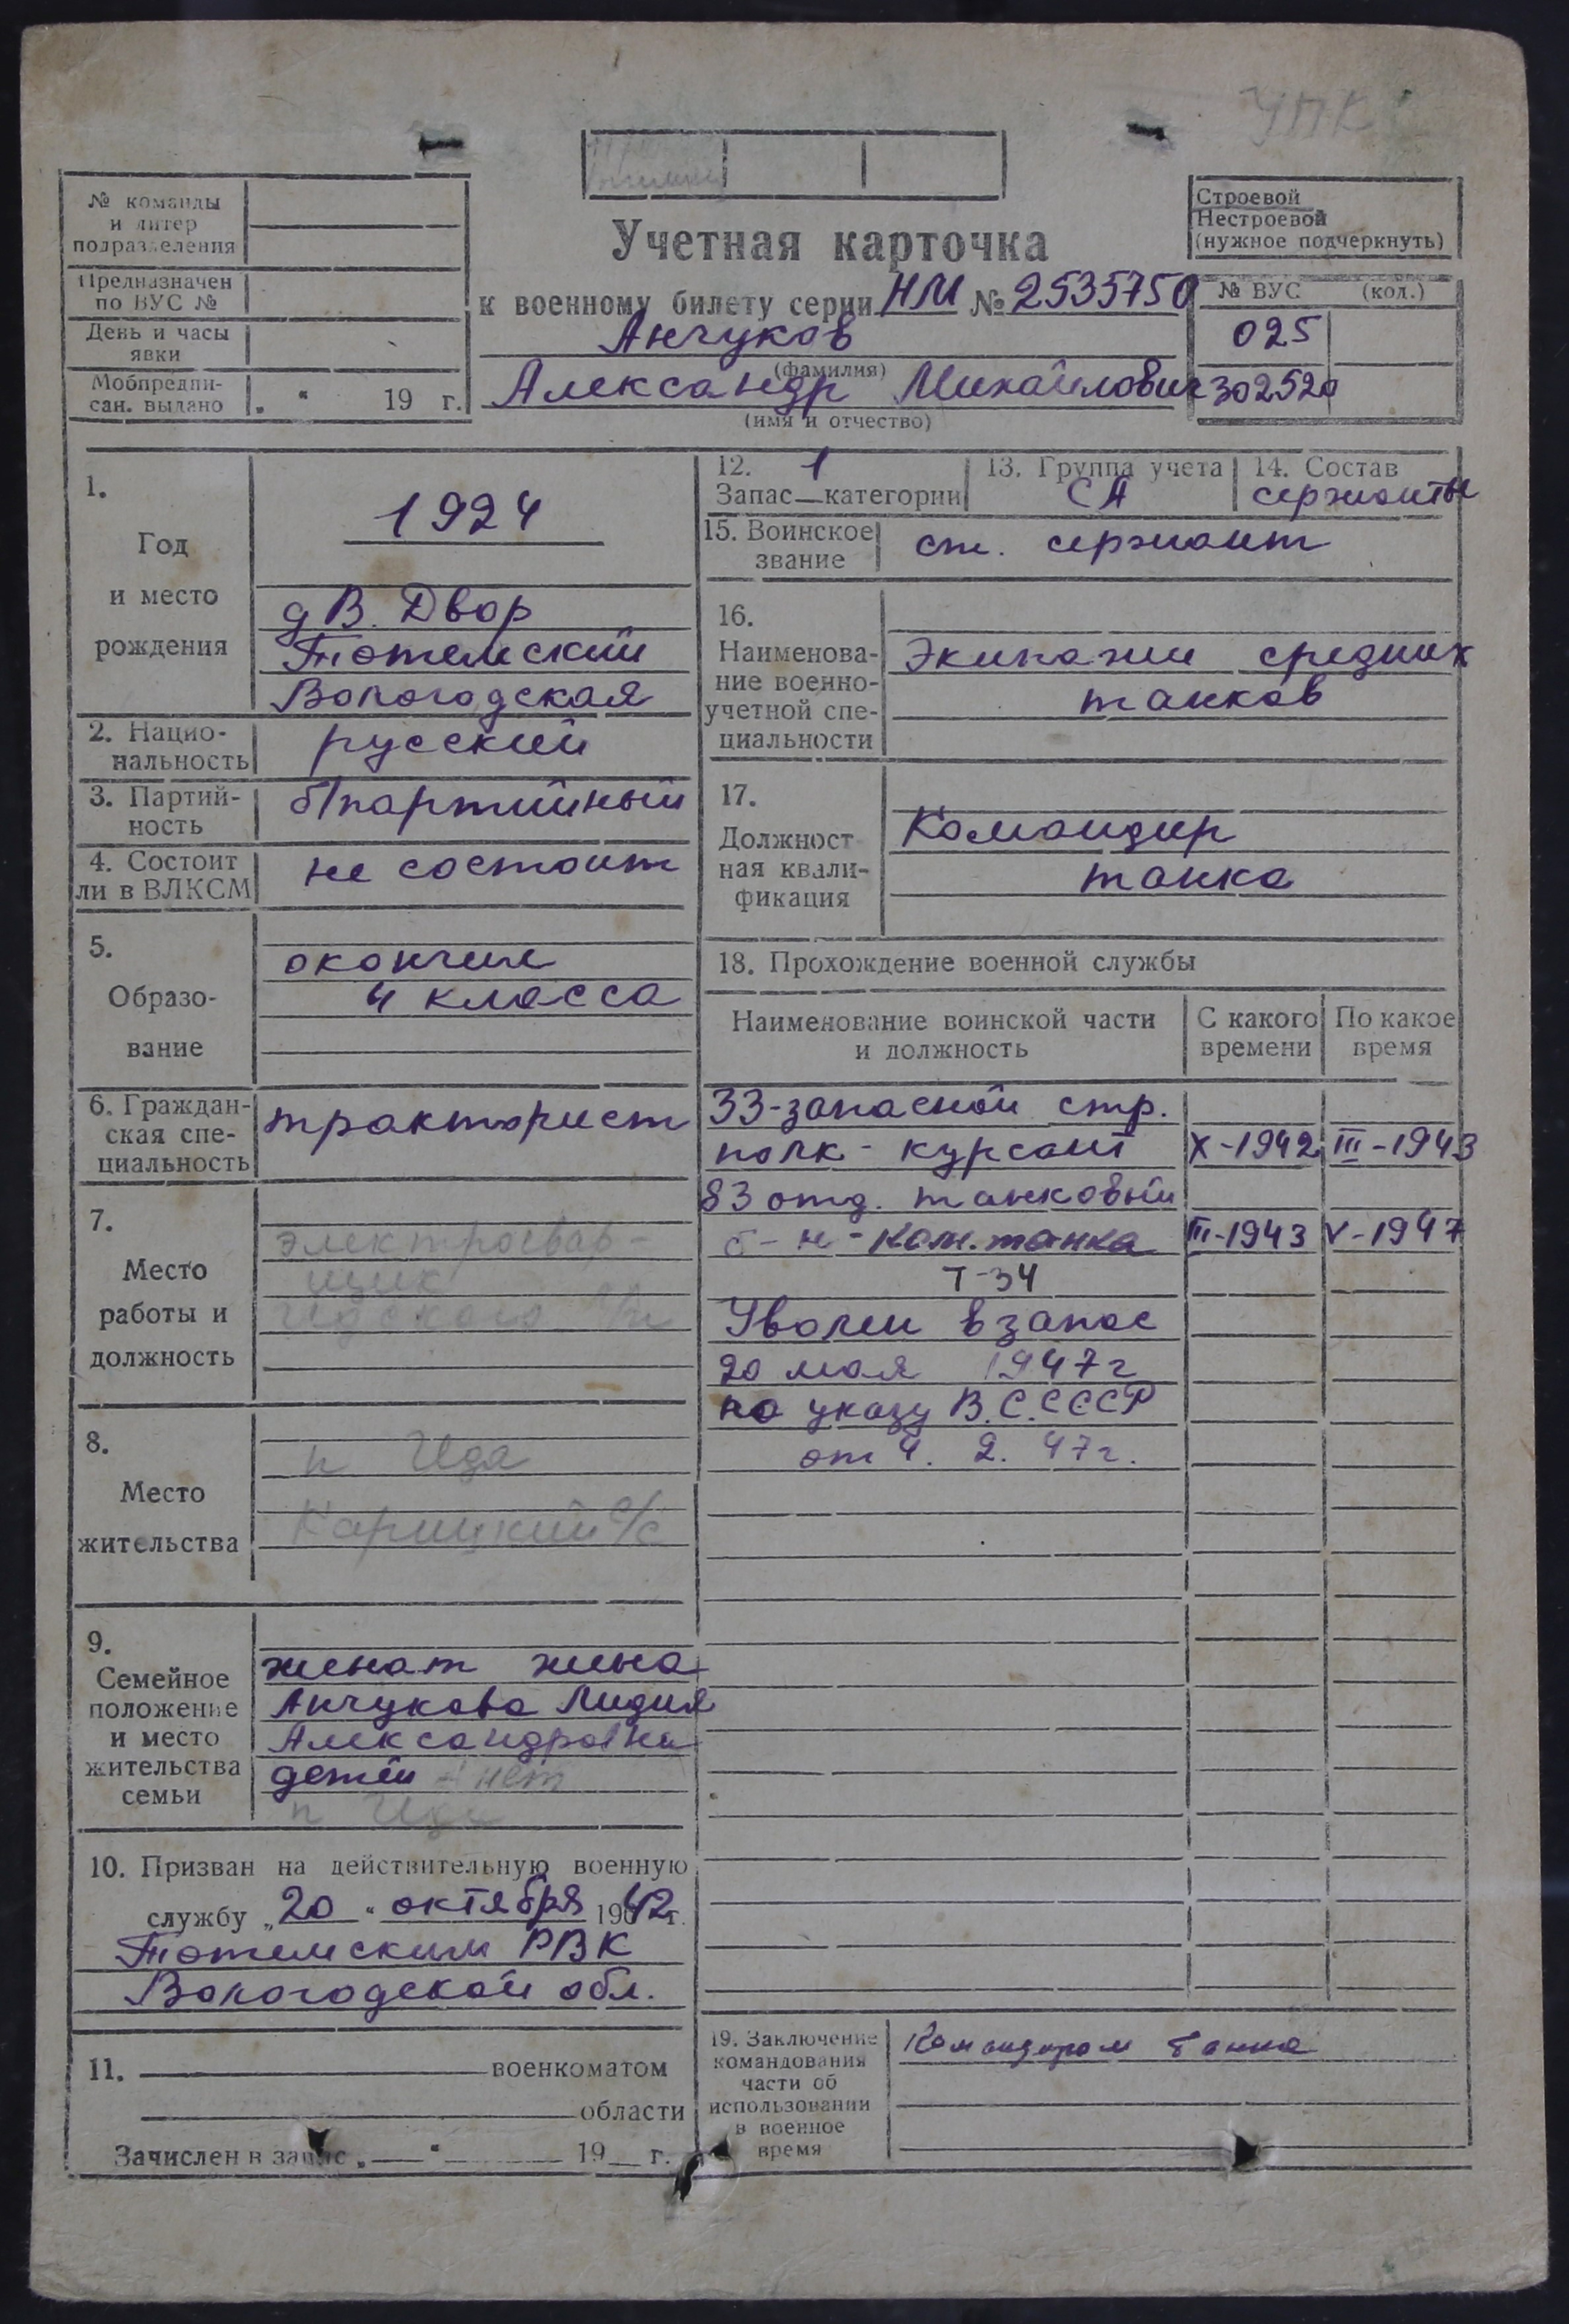 УПК
№ команды
и литер
подразделения
Предназначен
по ВУС №
День и часы
явки
Мобпредпи-
сан. выдано „ “ 19 г.
Учетная карточка
к военному билету серии НМ № 2535750
Анчуков
(фамилия)
Александр Михайлович
(имя и отчество)
Строевой
Нестроевой
(нужное подчеркнуть)
№ ВУС (код.)
025
302520
1.
Год
и место
рождения
1924
д В. Двор
Тотемский
Вологодская
2. Нацио-
нальность
русский
3. Партий-
ность
б/партийный
4. Состоит
ли в ВЛКСМ
не состоит
5.
Образо-
вание
окончил
4 класса
6. Граждан-
ская спе-
циальность
тракторист
7.
Место
работы и
должность
электросвар-
щик
8.
Место
жительства
п Ида
Карицкий с/с
9.
Семейное
положение
и место
жительства
семьи
женат жена
Анчукова Лидия
Александровна
детей - нет
п Ида
10. Призван на действительную военную
службу „20“ октября 1942г.
Тотемским РВК
Вологодской обл.
11. военкоматом
области
Зачислен в запас „ “ 19 г.
12. 1
Запас—категории
13. Группа учета
СА
14. Состав
сержанты
15. Воинское
звание
ст. сержант
16.
Наименова-
ние военно-
учетной спе-
циальности
Экипажи средних
танков
17.
Должност
ная квали-
фикация
Командир
танка
18. Прохождение военной службы
Наименование воинской части
и должность
С какого
времени
По какое
время
33-запасной стр.
полк - курсант X-1942 III-1943
83 отд. танковый
б-н - Ком. танка III-1943 V-1947
Т-34
Уволен в запас
20 мая 1947г
по указу В.С.СССР
от 4. 2. 47г.
19. Заключение
командования
части об
использовании
в военное
время
Командиром танка